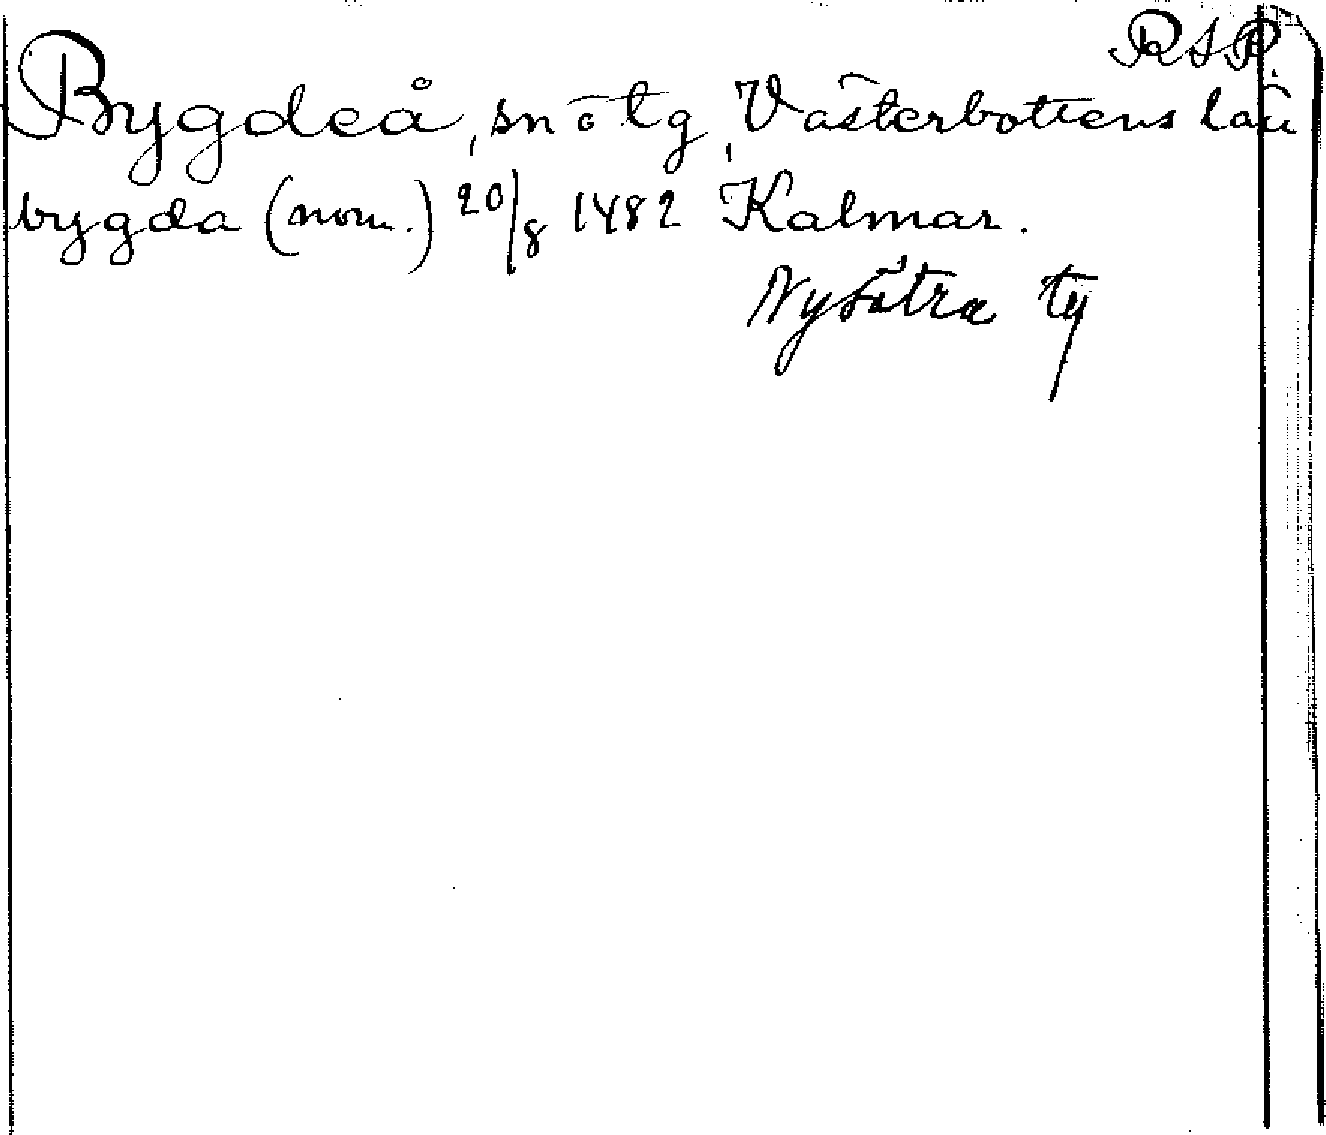 RAP.
Bygdeå, sn o tg, Västerbottens län
bygda (nom.) 20/8 1482 Kalmar.
Nysätra tg